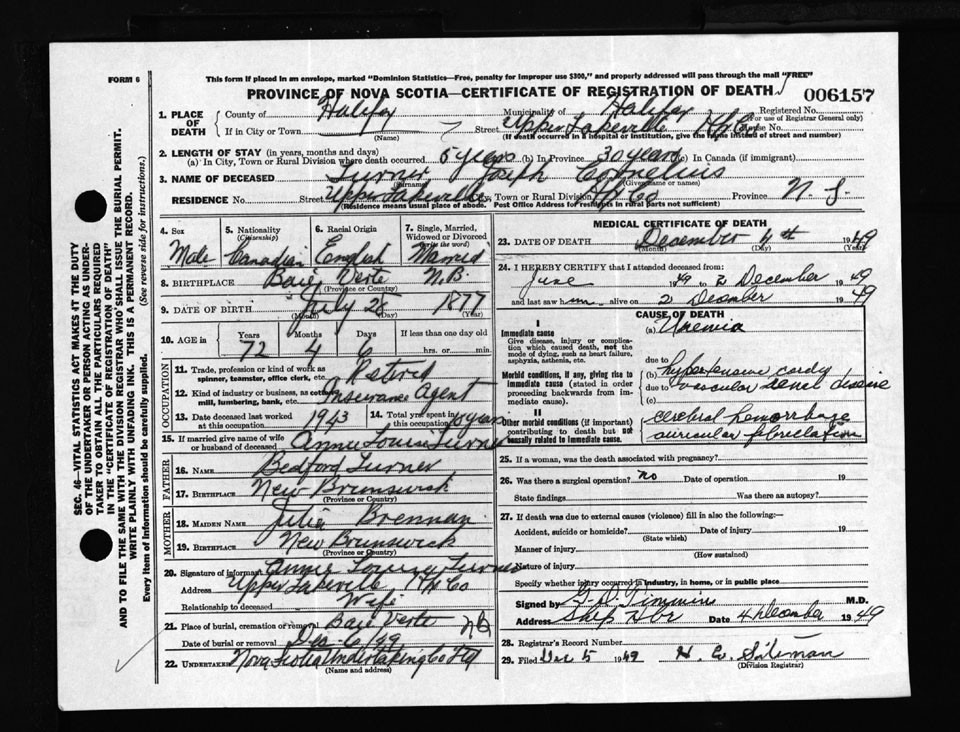 FORM 6
This form if placed in an envelope, marked "Dominion Statistics—Free, penalty for improper use $300," and properly addressed will pass through the mail "FREE"
PROVINCE OF NOVA SCOTIA—CERTIFICATE OF REGISTRATION OF DEATH
006157
1. PLACE OF DEATH
County of Halifax (Name)
Municipality of Halifax
Registered No. (For use of Registrar General only)
If in City or Town
Street Upper Lakeville Hfx Co House No.
(If death occurred in a hospital or institution, give the name instead of street and number)
2. LENGTH OF STAY (in years, months and days)
(a) In City, Town or Rural Division where death occurred 5 years (b) In Province 30 years (c) In Canada (if immigrant)
3. NAME OF DECEASED Turner Joseph Cornelius
(Surname) (Given name or names)
RESIDENCE No. Street Upper Lakeville City, Town or Rural Division Hfx Co Province N. S.
(Residence means usual place of abode. Post Office Address for residence in rural parts not sufficient)
4. Sex Male
5. Nationality (Citizenship) Canadian
6. Racial Origin English
7. Single, Married, Widowed or Divorced (Write the word) Married
8. BIRTHPLACE Baie Verte N.B.
(Province or Country)
9. DATE OF BIRTH July 28 1877
(Month) (Day) (Year)
10. AGE in Years 72 Months 4 Days 6 If less than one day old hrs. or min.
OCCUPATION
11. Trade, profession or kind of work as spinner, teamster, office clerk, etc. Retired
12. Kind of industry or business, as cotton mill, lumbering, bank, etc. Insurance Agent
13. Date deceased last worked at this occupation 1943
14. Total yrs. spent in this occupation years
15. If married give name of wife or husband of deceased Annie Louise Turner
FATHER
16. NAME Bedford Turner
17. BIRTHPLACE New Brunswick
(Province or Country)
MOTHER
18. MAIDEN NAME Julia Brennan
19. BIRTHPLACE New Brunswick
(Province or Country)
20. Signature of informant Annie Louise Turner
Address Upper Lakeville Hfx Co
Relationship to deceased Wife
21. Place of burial, cremation or removal Baie Verte NB
Date of burial or removal Dec 6/49
22. UNDERTAKER Nova Scotia Undertaking Co Ltd
(Name and address)
MEDICAL CERTIFICATE OF DEATH
23. DATE OF DEATH December 4th 1949
(Month) (Day) (Year)
24. I HEREBY CERTIFY that I attended deceased from:
June 1949 to 2 December 1949
and last saw him alive on 2 December 1949
CAUSE OF DEATH
I
Immediate cause
Give disease, injury or complication which caused death, not the mode of dying, such as heart failure, asphyxia, asthenia, etc.
(a) Uremia
due to
Morbid conditions, if any, giving rise to immediate cause (stated in order proceeding backwards from immediate cause).
(b) hypertensive cardio
due to vascular renal disease
(c)
II
Other morbid conditions (if important) contributing to death but not causally related to immediate cause.
cerebral hemorrhage
auricular fibrillation
25. If a woman, was the death associated with pregnancy?
26. Was there a surgical operation? no Date of operation 19
State findings Was there an autopsy?
27. If death was due to external causes (violence) fill in also the following:
Accident, suicide or homicide? Date of injury 19
(State which)
Manner of injury
(How sustained)
Nature of injury
Specify whether injury occurred in industry, in home, or in public place
Signed by G. D. Timmins M.D.
Address Ship Hbr Date 4 December 1949
28. Registrar's Record Number
29. Filed Dec 5 1949 H. E. Siteman
(Division Registrar)
SEC. 46—VITAL STATISTICS ACT MAKES IT THE DUTY
OF THE UNDERTAKER OR PERSON ACTING AS UNDER-
TAKER TO OBTAIN ALL THE PARTICULARS REQUIRED
IN THE "CERTIFICATE OF REGISTRATION OF DEATH"
AND TO FILE THE SAME WITH THE DIVISION REGISTRAR WHO SHALL ISSUE THE BURIAL PERMIT.
WRITE PLAINLY WITH UNFADING INK. THIS IS A PERMANENT RECORD.
Every item of Information should be carefully supplied. (See reverse side for instructions.)